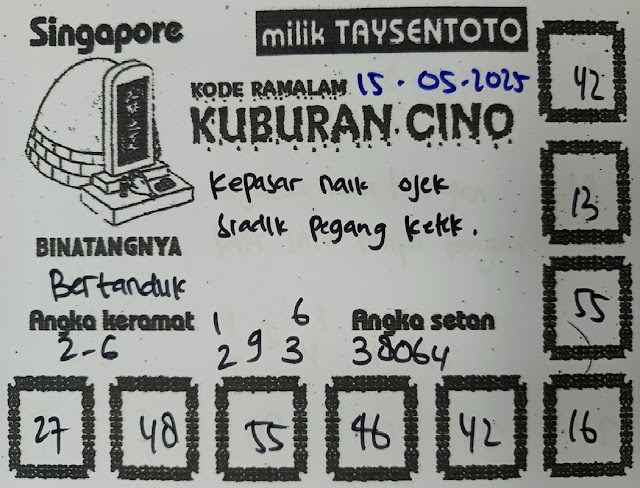 Singapore
milik TAYSENTOTO
KODE RAMALAM 15-05-2025
KUBURAN CINO
42
Kepasar naik ojek
sradik pegang ketek.
13
BINATANGNYA
Bertanduk
55
Angka keramat
2-6
1 6
2 9 3
Angka setan
38064
27 48 55 46 42 16